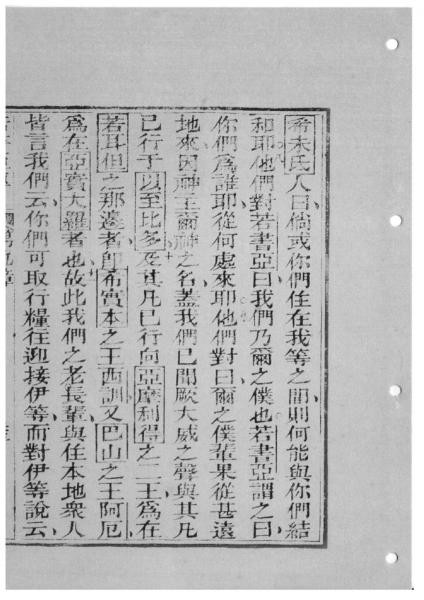 希未氏人曰倘或你們住在我等之間則何能與你們結
和耶他們對若書亞曰我們乃爾之僕也若書亞謂之曰
你們爲誰耶從何處來耶他們對曰爾之僕輩果從甚遠
地來因神主爾神之名蓋我們已聞厥大威之聲與其凡
已行于以至比多及其凡已行向亞摩利得之二王爲在
若耳但之那邊者卽希實本之王西訓又巴山之王阿厄
爲在亞實大羅者也故此我們之老長輩與住本地衆人
皆言我們云你們可取行糧往迎接伊等而對伊等說云